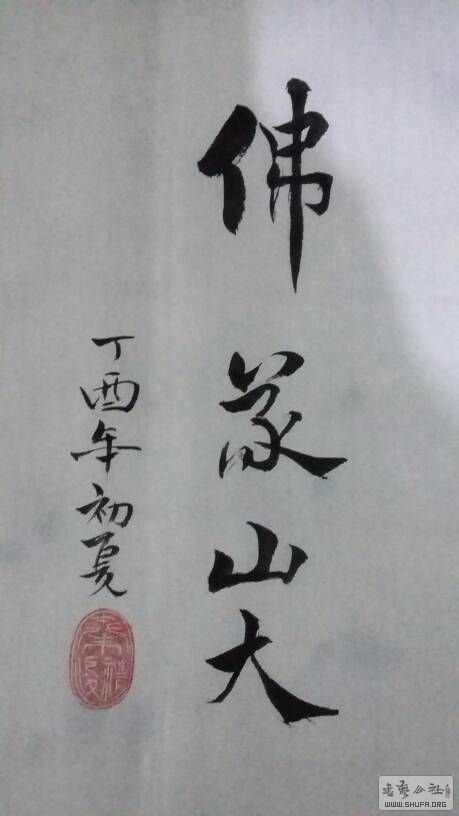 佛蒙山大
丁酉年初夏
书艺公社
WWW.SHUFA.ORG